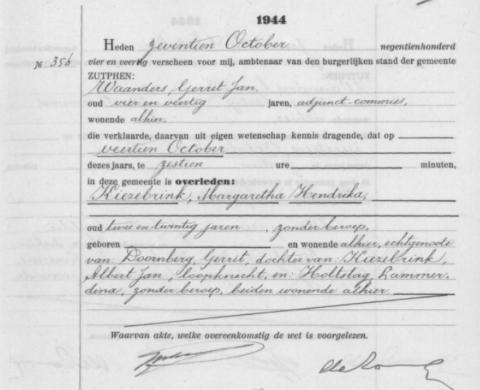 1944
Heden zeventien October negentienhonderd
№ 356 vier en veertig verscheen voor mij, ambtenaar van den burgerlijken stand der gemeente
ZUTPHEN:
Waanders, Gerrit Jan,
oud vier en veertig jaren, adjunct-commies,
wonende alhier.
die verklaarde, daarvan uit eigen wetenschap kennis dragende, dat op
veertien October
dezes jaars, te zestien ure minuten,
in deze gemeente is overleden:
Kiezebrink, Margaretha Hendrika,
oud twee en twintig jaren, zonder beroep,
geboren en wonende alhier, echtgenoote
van Doornberg, Gerrit, dochter van Kiezebrink,
Albert Jan, loopknecht, en Holtslag, Lammer-
dina, zonder beroep, beiden wonende alhier.
Waarvan akte, welke overeenkomstig de wet is voorgelezen.